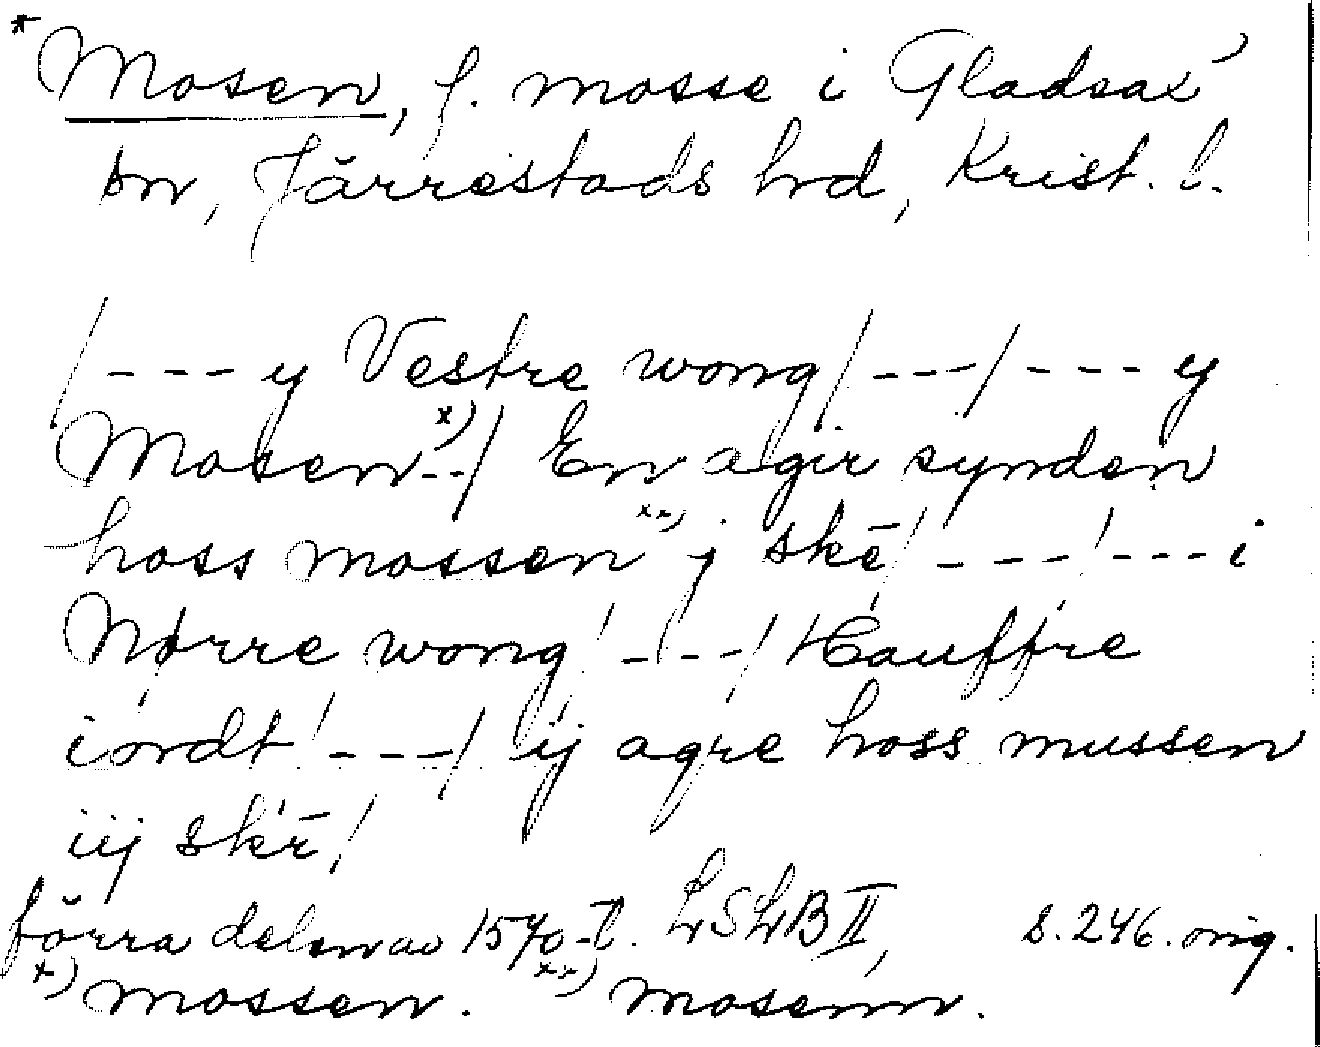 *Mosen, f. mosse i Gladsax
sn, Järrestads hd, Krist. l.
/--- y Vestre wong/---/--- y
Mosen x)--/ En agir synden
hoss mossen xx) j skē/ ---/--- i
Nørre wong/ ---/ Hauffre
iordt/---/ ij agre hoss mussen
iij skr̄/
förra delen av 1570-t. LSLB II, s. 246. orig.
x) mossen. xx) mosenn.